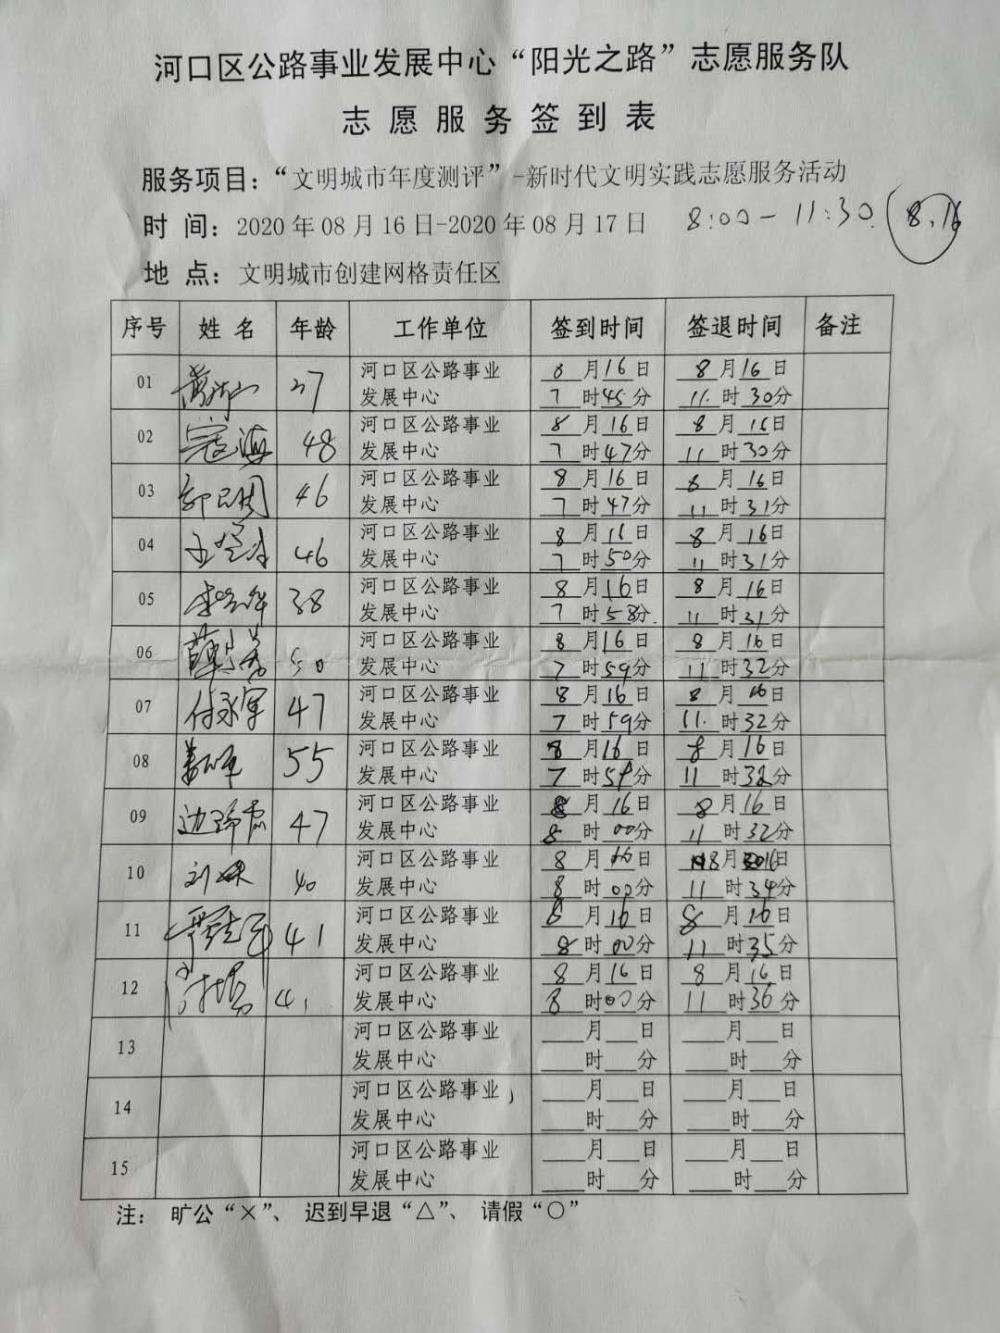 河口区公路事业发展中心“阳光之路”志愿服务队
志愿服务签到表
服务项目：“文明城市年度测评”-新时代文明实践志愿服务活动
时 间：2020年08月16日-2020年08月17日 8:00-11:30 8.16
地 点：文明城市创建网格责任区
序号 姓名 年龄 工作单位 签到时间 签退时间 备注
01 37 河口区公路事业发展中心 8月16日7时45分 8月16日11时30分
02 寇海 48 河口区公路事业发展中心 8月16日7时47分 8月16日11时30分
03 46 河口区公路事业发展中心 8月16日7时47分 8月16日11时31分
04 46 河口区公路事业发展中心 8月16日7时50分 8月16日11时31分
05 38 河口区公路事业发展中心 8月16日7时58分 8月16日11时31分
06 50 河口区公路事业发展中心 8月16日7时59分 8月16日11时32分
07 付永军 47 河口区公路事业发展中心 8月16日7时59分 8月16日11时32分
08 55 河口区公路事业发展中心 8月16日7时59分 8月16日11时32分
09 47 河口区公路事业发展中心 8月16日8时00分 8月16日11时32分
10 40 河口区公路事业发展中心 8月16日8时00分 8月16日11时34分
11 41 河口区公路事业发展中心 8月16日8时00分 8月16日11时35分
12 41 河口区公路事业发展中心 8月16日8时00分 8月16日11时36分
13 河口区公路事业发展中心 月 日 时 分 月 日 时 分
14 河口区公路事业发展中心 月 日 时 分 月 日 时 分
15 河口区公路事业发展中心 月 日 时 分 月 日 时 分
注： 旷公“×”、 迟到早退“△”、 请假“○”